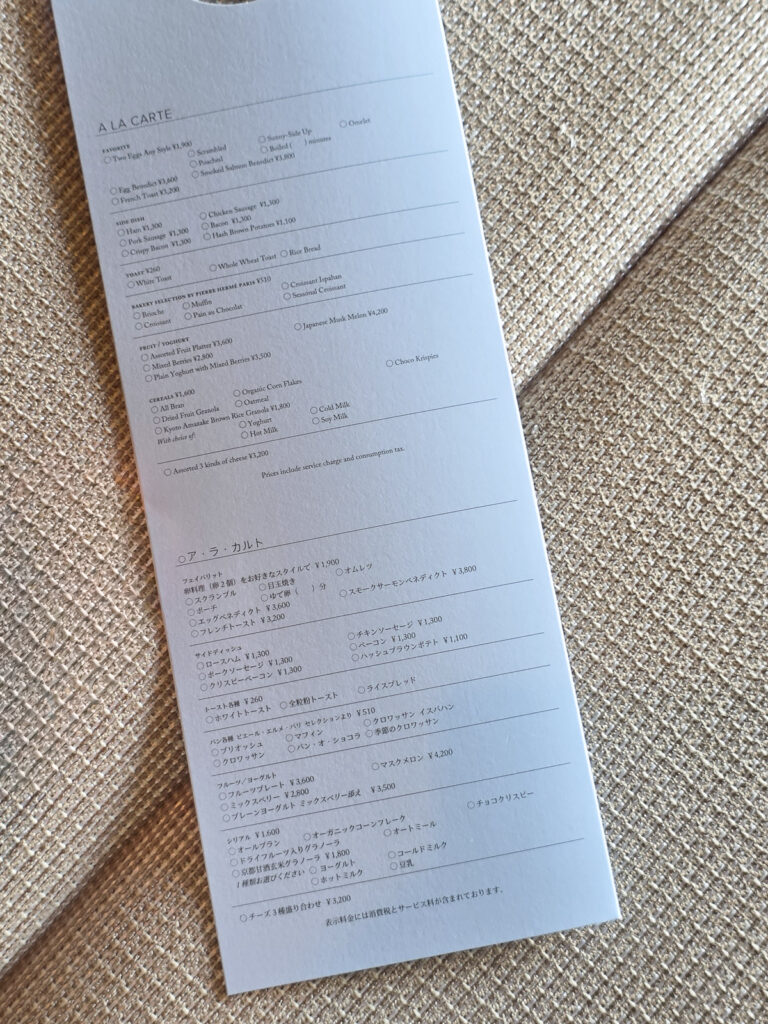 A LA CARTE
FAVORITE
○ Two Eggs Any Style ¥1,900 ○ Scrambled ○ Sunny-Side Up ○ Omelet
○ Poached ○ Boiled ( ) minutes
○ Egg Benedict ¥3,600 ○ Smoked Salmon Benedict ¥3,800
○ French Toast ¥3,200
SIDE DISH
○ Ham ¥1,300 ○ Chicken Sausage ¥1,300
○ Pork Sausage ¥1,300 ○ Bacon ¥1,300
○ Crispy Bacon ¥1,300 ○ Hash Brown Potatoes ¥1,100
TOAST ¥260
○ White Toast ○ Whole Wheat Toast ○ Rice Bread
BAKERY SELECTION BY PIERRE HERMÉ PARIS ¥510
○ Brioche ○ Muffin ○ Croissant Ispahan
○ Croissant ○ Pain au Chocolat ○ Seasonal Croissant
FRUIT / YOGHURT
○ Assorted Fruit Platter ¥3,600 ○ Japanese Musk Melon ¥4,200
○ Mixed Berries ¥2,800
○ Plain Yoghurt with Mixed Berries ¥3,500
CEREALS ¥1,600
○ All Bran ○ Organic Corn Flakes ○ Choco Krispies
○ Dried Fruit Granola ○ Oatmeal
○ Kyoto Amazake Brown Rice Granola ¥1,800
With choice of: ○ Yoghurt ○ Cold Milk
○ Hot Milk ○ Soy Milk
○ Assorted 3 kinds of cheese ¥3,200
Prices include service charge and consumption tax.
○ア・ラ・カルト
フェイバリット
卵料理（卵2個）をお好きなスタイルで ¥1,900
○スクランブル ○目玉焼き ○オムレツ
○ポーチ ○ゆで卵（ ）分
○エッグベネディクト ¥3,600 ○スモークサーモンベネディクト ¥3,800
○フレンチトースト ¥3,200
サイドディッシュ
○ロースハム ¥1,300 ○チキンソーセージ ¥1,300
○ポークソーセージ ¥1,300 ○ベーコン ¥1,300
○クリスピーベーコン ¥1,300 ○ハッシュブラウンポテト ¥1,100
トースト各種 ¥260
○ホワイトトースト ○全粒粉トースト ○ライスブレッド
パン各種 ピエール・エルメ・パリ セレクションより ¥510
○ブリオッシュ ○マフィン ○クロワッサン イスパハン
○クロワッサン ○パン・オ・ショコラ ○季節のクロワッサン
フルーツ／ヨーグルト
○フルーツプレート ¥3,600 ○マスクメロン ¥4,200
○ミックスベリー ¥2,800
○プレーンヨーグルト ミックスベリー添え ¥3,500
シリアル ¥1,600
○オールブラン ○オーガニックコーンフレーク ○チョコクリスピー
○ドライフルーツ入りグラノーラ ○オートミール
○京都甘酒玄米グラノーラ ¥1,800
1種類お選びください ○ヨーグルト ○コールドミルク
○ホットミルク ○豆乳
○チーズ3種盛り合わせ ¥3,200
表示料金には消費税とサービス料が含まれております。